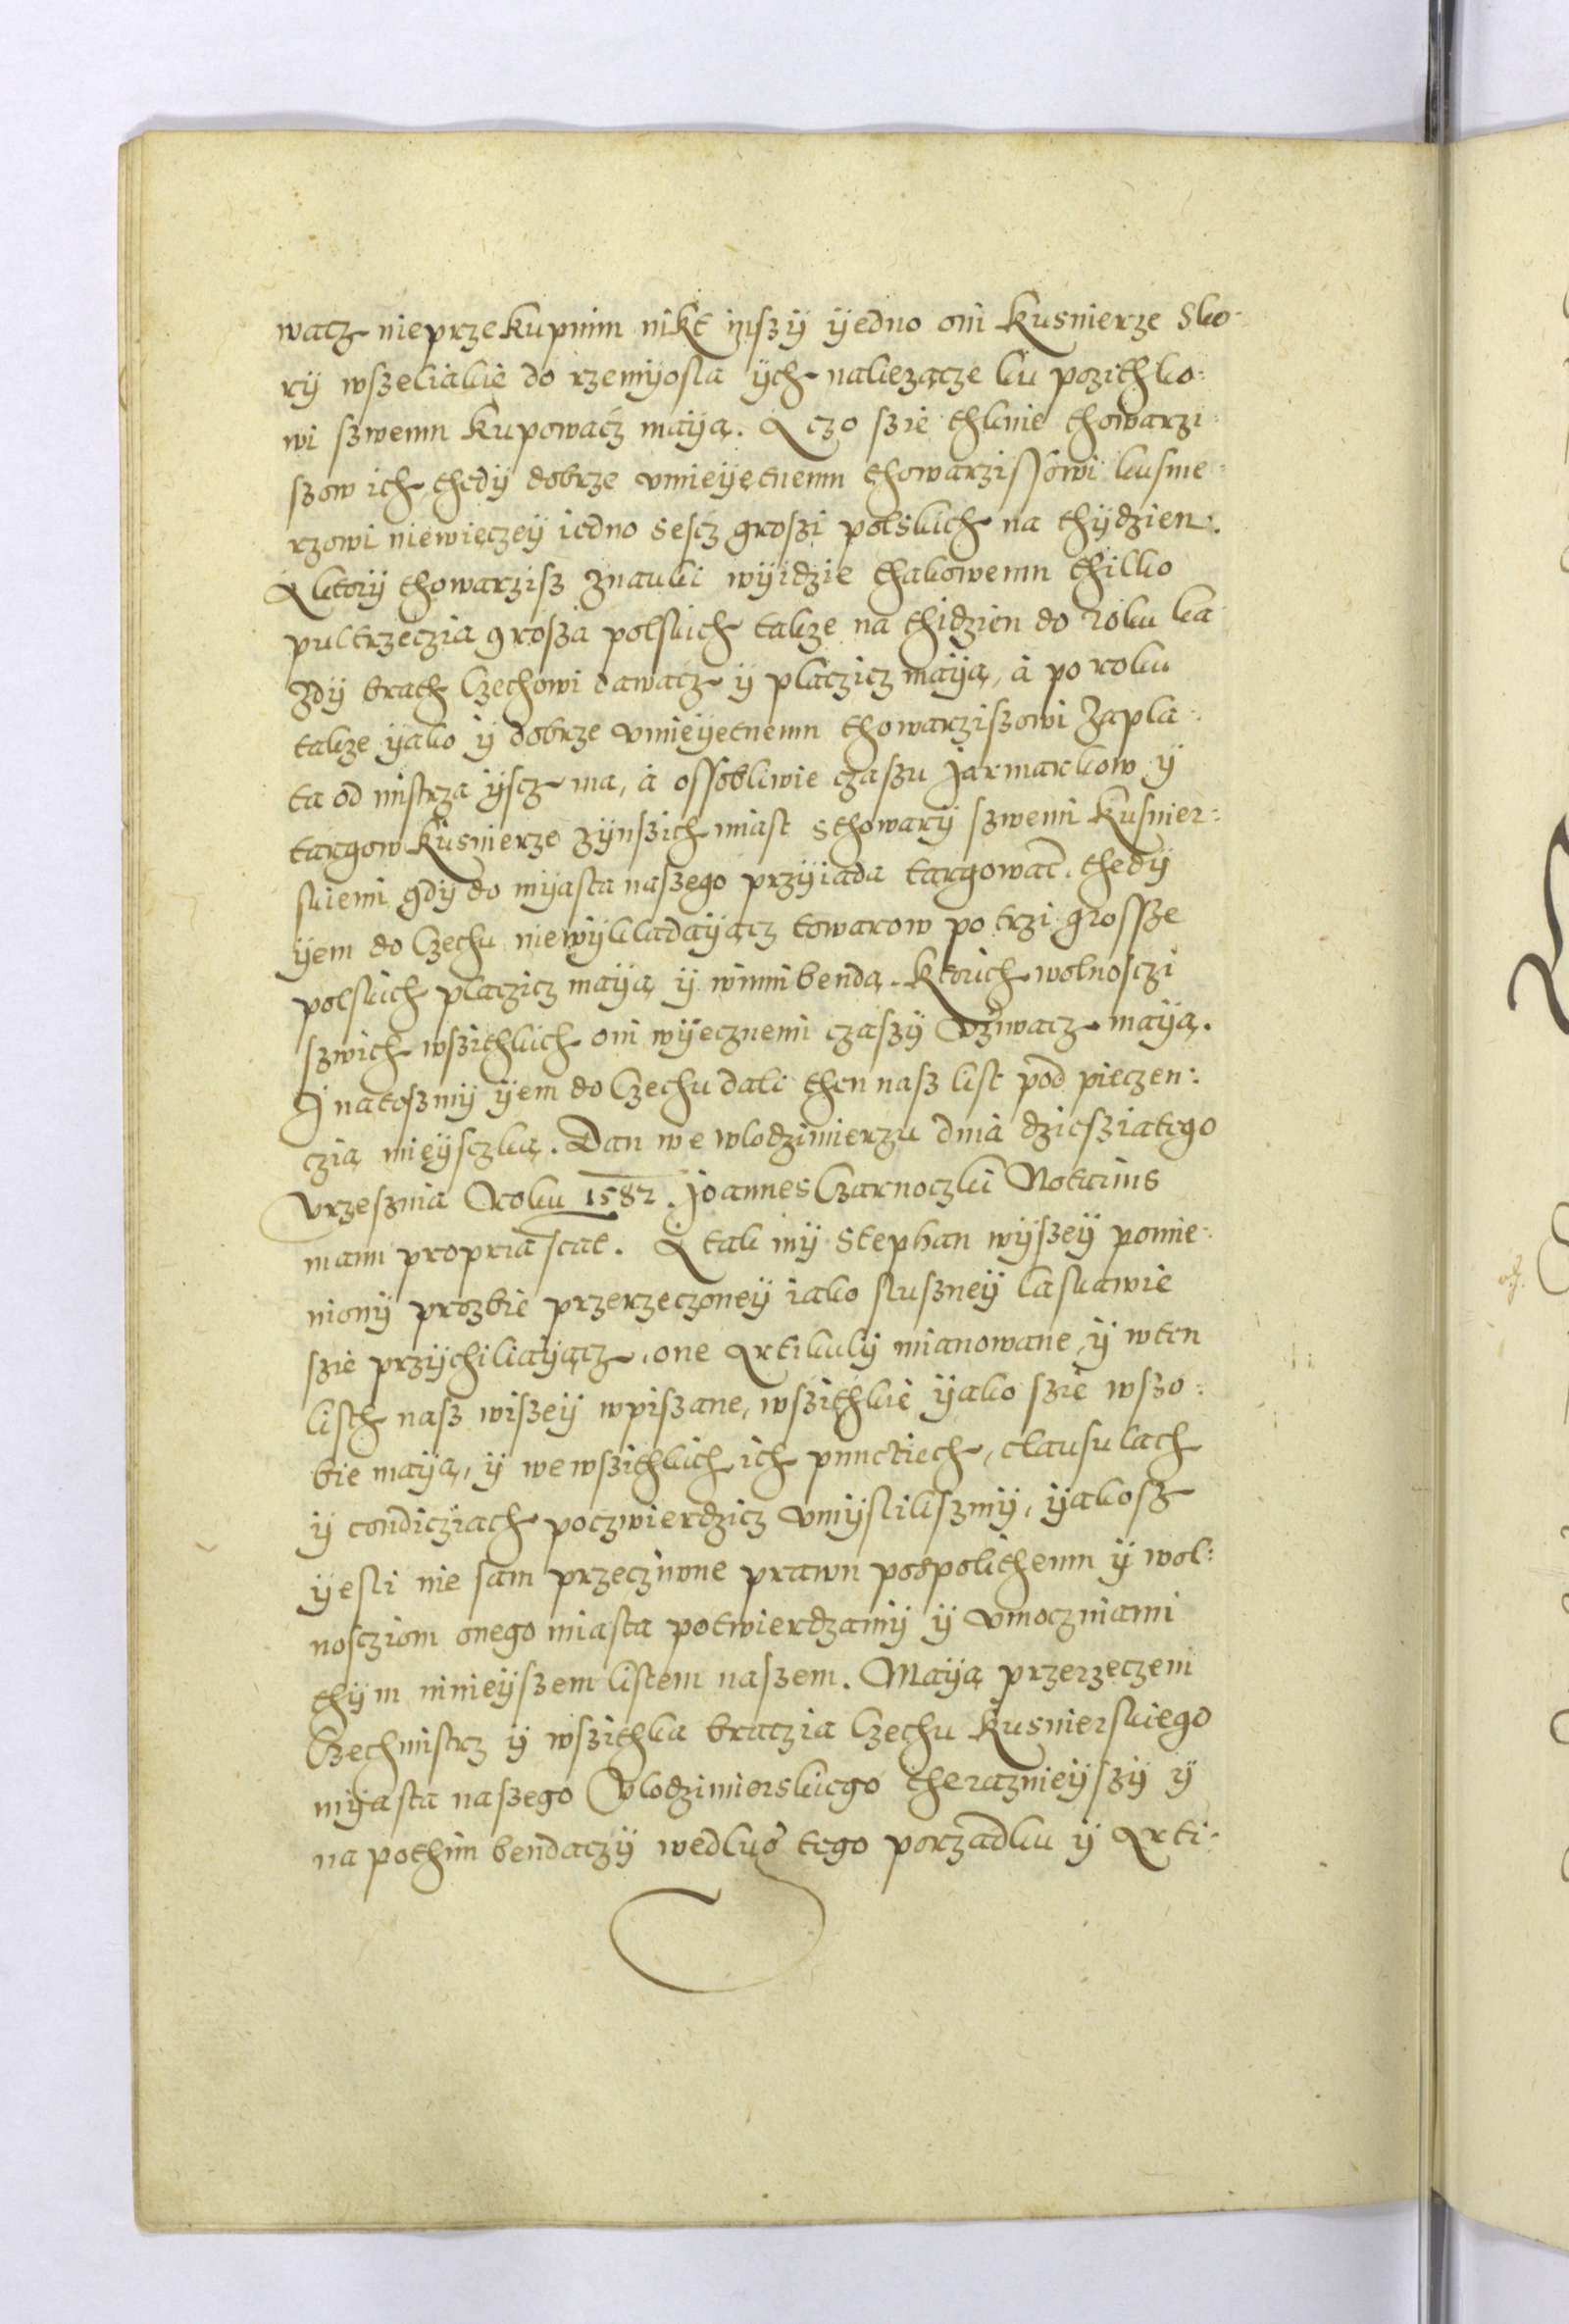 wacz nieprzekupnim nikt inszÿ ÿedno oni Kusnierze Sko-
rÿ wszeliakie do rzemÿosla ÿch nalezącze ku pozithko:
wi szwemu Kupowacz maÿą. A czo szie thknie thowarzi:
szow ich, thedÿ dobrze vmieÿętnemu thowarzissowi kusnie:
rzowi niewięczeÿ iedno sescz groszi polskich na thÿdzien:
A ktorÿ thowarzisz znauki wÿidzie thakowemu thilko
pultrzeczia grosza polskich takze na thidzien do roku ka
zdÿ brath Czechowi dawacz ÿ placzicz maÿą, à po roku
takze ÿako ÿ dobrze vmieÿetnemu thowarziszowi zapla:
ta od mistrza ÿscz ma, à ossobliwie czaszu Jarmarkow ÿ
targow Kusnierze zÿnszich miast sthowarÿ szwemi Kusnier:
skiemi gdÿ do mÿasta naszego przÿiada targowac. thedÿ
ÿem do Czechu niewÿkladaÿącz towarow po trzi grossze
polskich placzicz maÿą ÿ winni benda. Ktorich wolnosczi
szwich wszithkich oni wÿecznemi czaszÿ vziwacz maÿą.
J natoszmÿ ÿem do Czechu dali then nasz list pod pieczen:
czią mieÿsczką. Dan we wlodzimierzu dnia dziesziatego
Vrzesznia Roku 1582. Joannes Czarnoczki Notarius
manu propria scat. A tak mÿ Stephan wÿszeÿ pomie:
nionÿ prozbie przerzeczoneÿ iako sluszneÿ laskawie
szie przÿchiliaÿącz, one Artikulÿ mianowane, ÿ wten
listh nasz wiszeÿ wpiszane, wszithkie ÿako szie wszo:
bie maÿą, ÿ we wszithkich ich punctiech, clausulach
ÿ condicziach poczwierdzicz vmÿsliliszmÿ, ÿakosz
ÿesli nie sam przecziwne prawu pospolithemu ÿ wol:
nosczıom onego miasta potwierdzamÿ ÿ vmoczniami
thÿm ninieÿszem listem naszem. Maÿą przerzeczeni
Czechmistrz ÿ wszithka braczia Czechu Kusnierskiego
mÿasta naszego Vlodzimierskiego theraznieÿszÿ ÿ
na pothim bendaczÿ wedlug tego porzadku ÿ Arti: